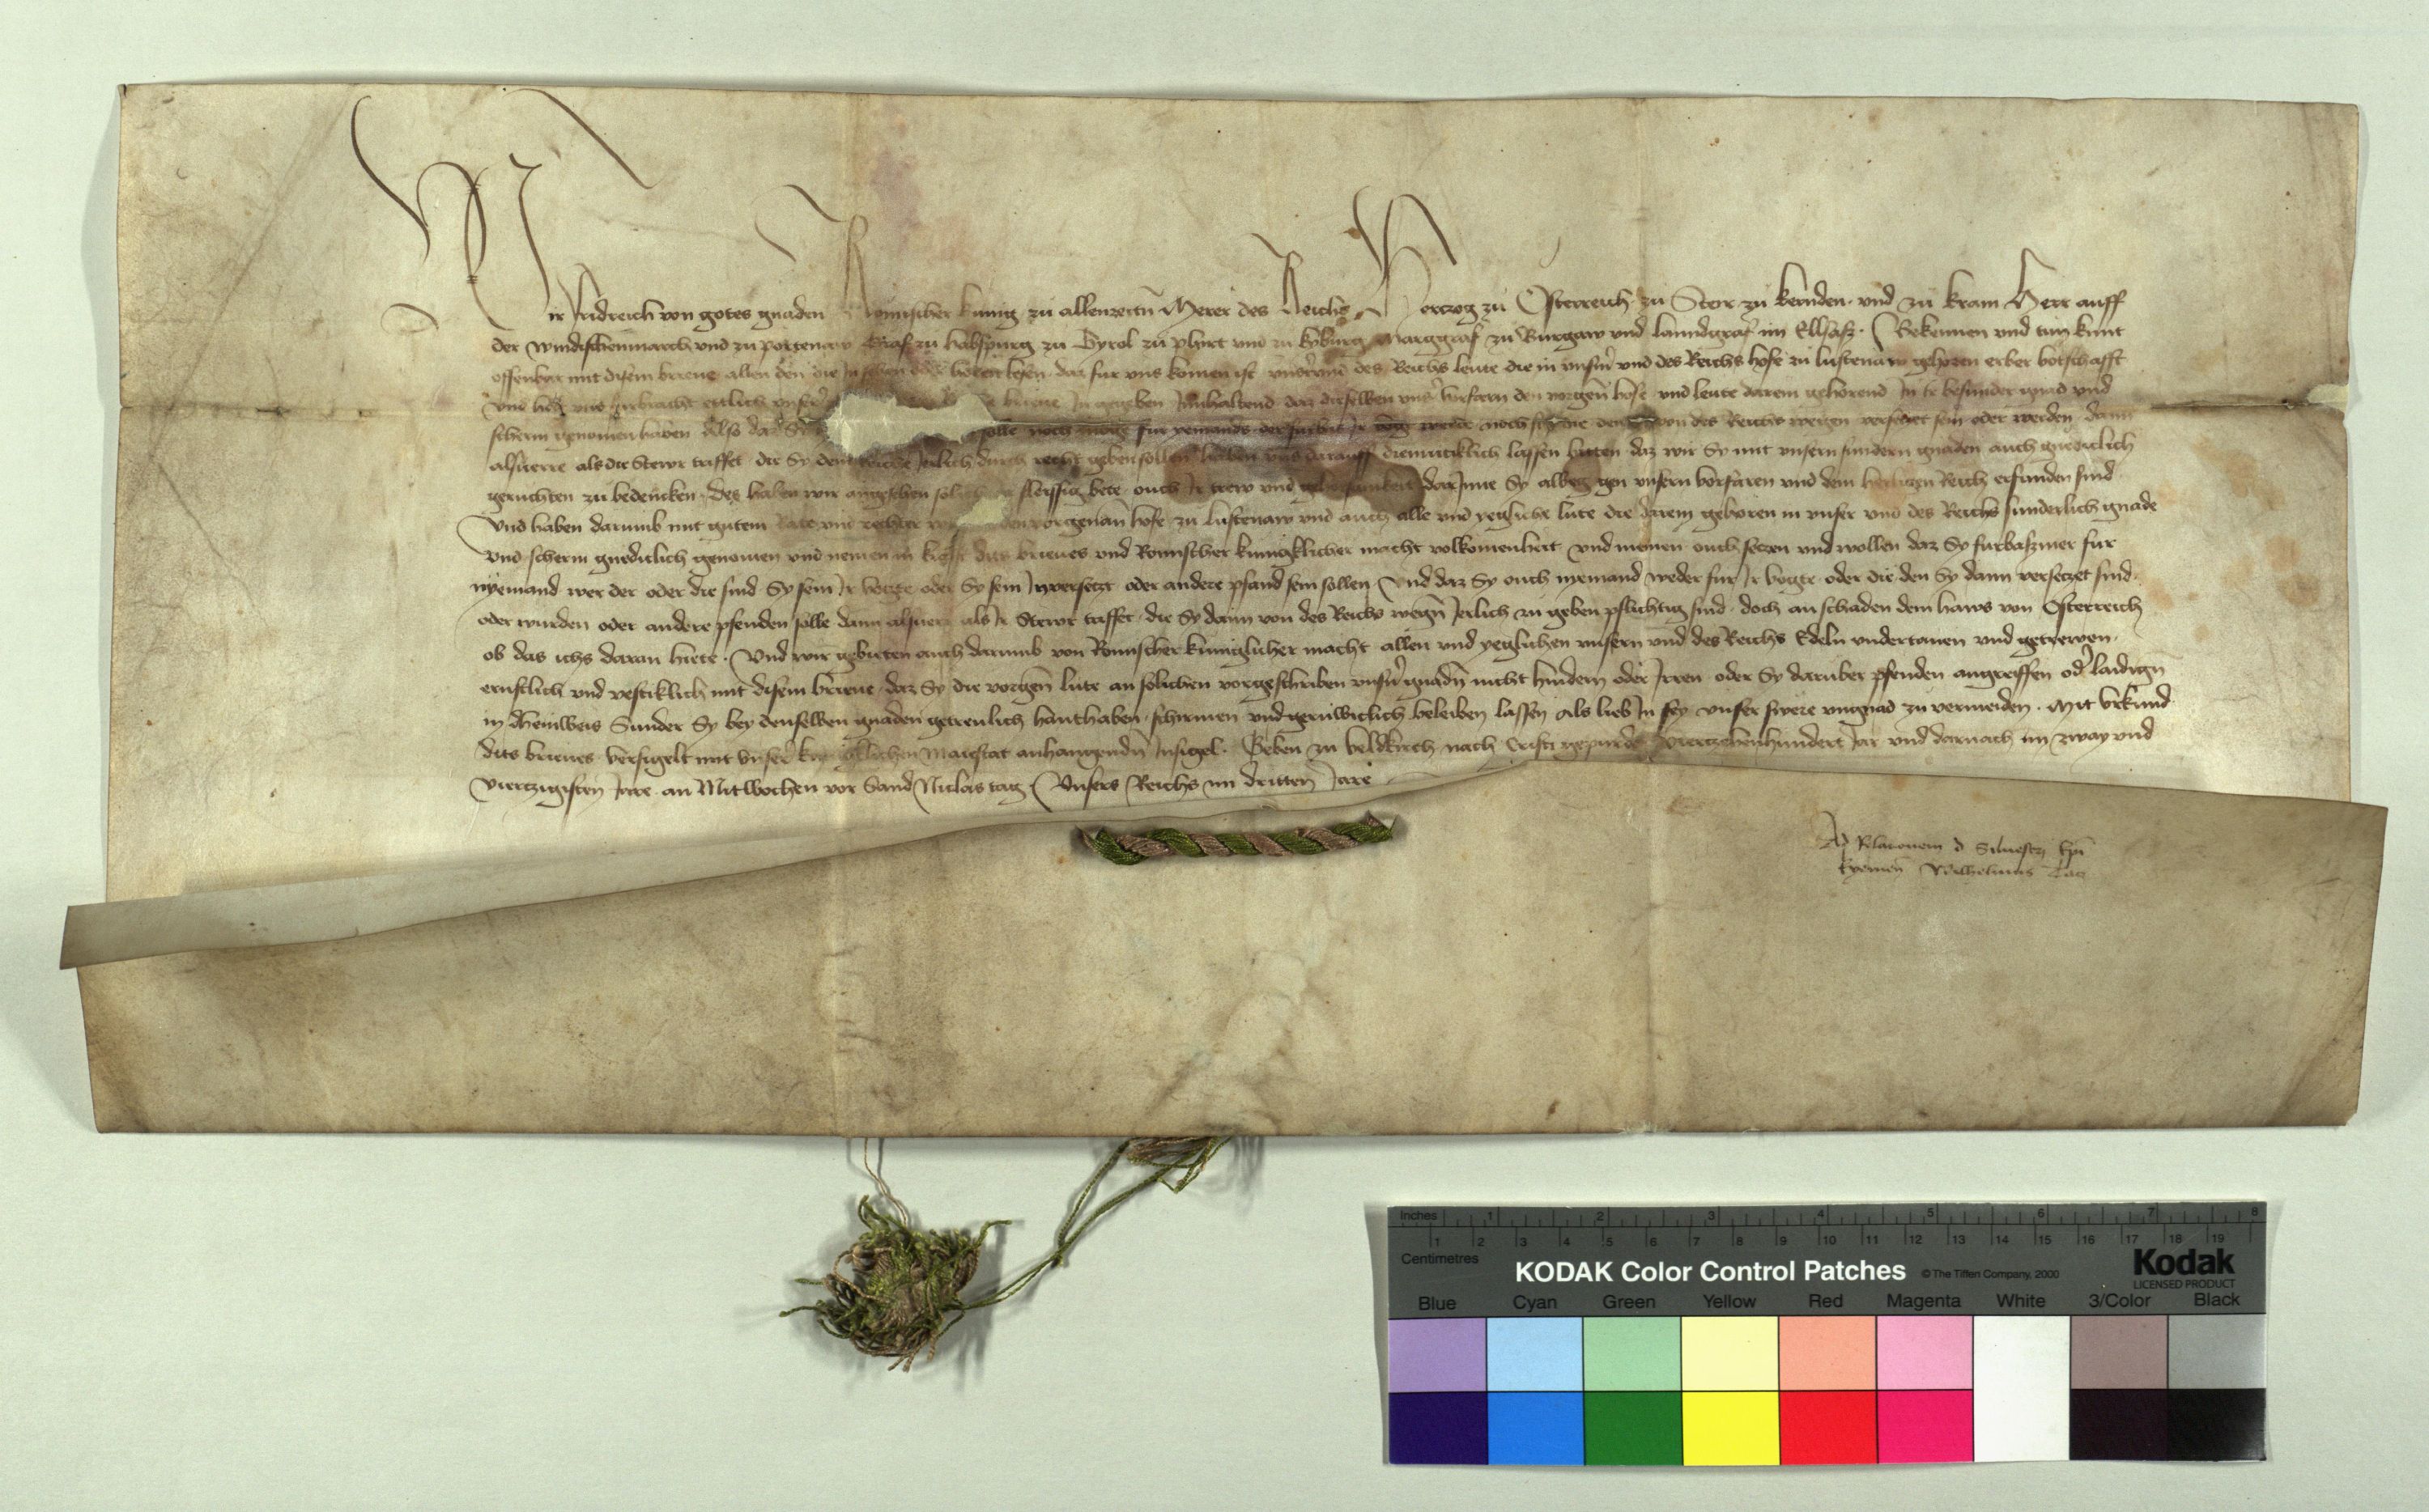 Wir Fridreich von gotes gnaden Romischer kunig zu allenzeitn Merer des Reichs Herczog zu Osterreich zu Steir zu kernden vnd zu krain Herr auff
der windischenmarch vnd zu portenaw Graf zu habspurg zu Tyrol zu phirt vnd zu kyburg Marggraf zu Burgaw vnd lanndgraf im Ellsass. Bekennen vnd tun kunt
offenbar mit disem brieue allen den die In sehen oder horen lesen daz fur vns komen ist vnser vnd des Reichs leute die in vnsern vnd des Reichs hofe zu lustenaw gehoren erber botschafft
vnd hat vns furbracht ettlich vnser brieue In gegeben Innhaltend daz dieselben vnser vorfarn den vorgen hofe vnd leute darein gehorend In ir besunder gnad vnd
scherm genomen haben Also daz Sy solle noch muge fur yemands von des Reichs wegen versetzt sein oder werden dann
alsuerre als die Stewr triffet die Sy Jerlich durch recht geben sollen haben vns darauff diemuticklich lassen bitten daz wir Sy mit vnsern sundern gnaden auch gnediclich
geruchten zu bedencken. Des haben wir angesehen solich ir fleissig bete ouch Ir trew vnd gehorsamkeit darJnne Sy albeg gen vnsern vorfaren vnd dem heiligen Reich erfunden sind
Vnd haben darumb mit gutem Rate vnd rechter den vorgenan hofe zu lustenaw vnd auch alle vnd yegliche lute die darein gehoren in vnser vnd des Reichs sunderlich gnade
vnd scherm gnediclich genomen vnd nemen in krafft diss brieues vnd Romischer kuniglicher macht volkomenheit vnd meinen ouch setzen vnd wollen daz Sy furbaszmer fur
nyemand wer der oder die sind Sy sein Ir vogte oder Sy sein In versetzt oder andere pfand sein sollen Vnd daz Sy ouch nyemand weder fur Ir vogte oder die den Sy dann versetzet sind
oder wurden oder andere pfenden solle dann alsuerr als Ir Stewr triffet die Sy dann von des Reichs wegn Jerlich zu geben pflichtig sind doch an schaden dem haws von Osterreich
ob das ichs daran hiete. Vnd wir gebieten auch darumb von Romischer kuniglicher macht allen vnd yeglichen vnsern vnd des Reichs Edeln vndertanen vnd getrewen
ernstlich vnd vesticlich mit disem brieue daz Sy die vorgen lute an solichen vorgeschriben vnsern gnadn nicht hindern oder Jrren oder Sy daruber pfenden angreiffen oder laidign
in dheinweis Sunder Sy bey denselben gnaden getreulich hanthaben schirmen vnd geruwiclich beleiben lassen als lieb In sey vnser swere vngnad zu vermeiden. Mit Vrkund
dits brieues versigelt mit vnser kuniglichen Maiestat anhangendn Insigel. Geben zu Veldkirch nach Cristi gepurde Vierzehenhundert Jar vnd darnach im zway vnd
Viertzigisten Jare an Mitwochen vor Sand Niclas tag Vnsers Reichs im dritten Jare
Ad Relacionem d Siluestri Epi
kyemen Wilhelmus Tacz
Inches 1 2 3 4 5 6 7 8
1 2 3 4 5 6 7 8 9 10 11 12 13 14 15 16 17 18 19
Centimetres
KODAK Color Control Patches © The Tiffen Company, 2000 Kodak
LICENSED PRODUCT
Blue Cyan Green Yellow Red Magenta White 3/Color Black